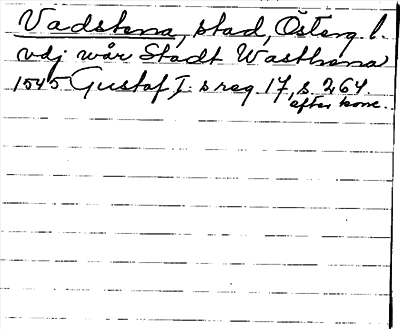 Vadstena, stad, Österg. l.
vdj wår Stadt Wasthena
1545 Gustaf I:s reg. 17, s. 264.
efter konc.